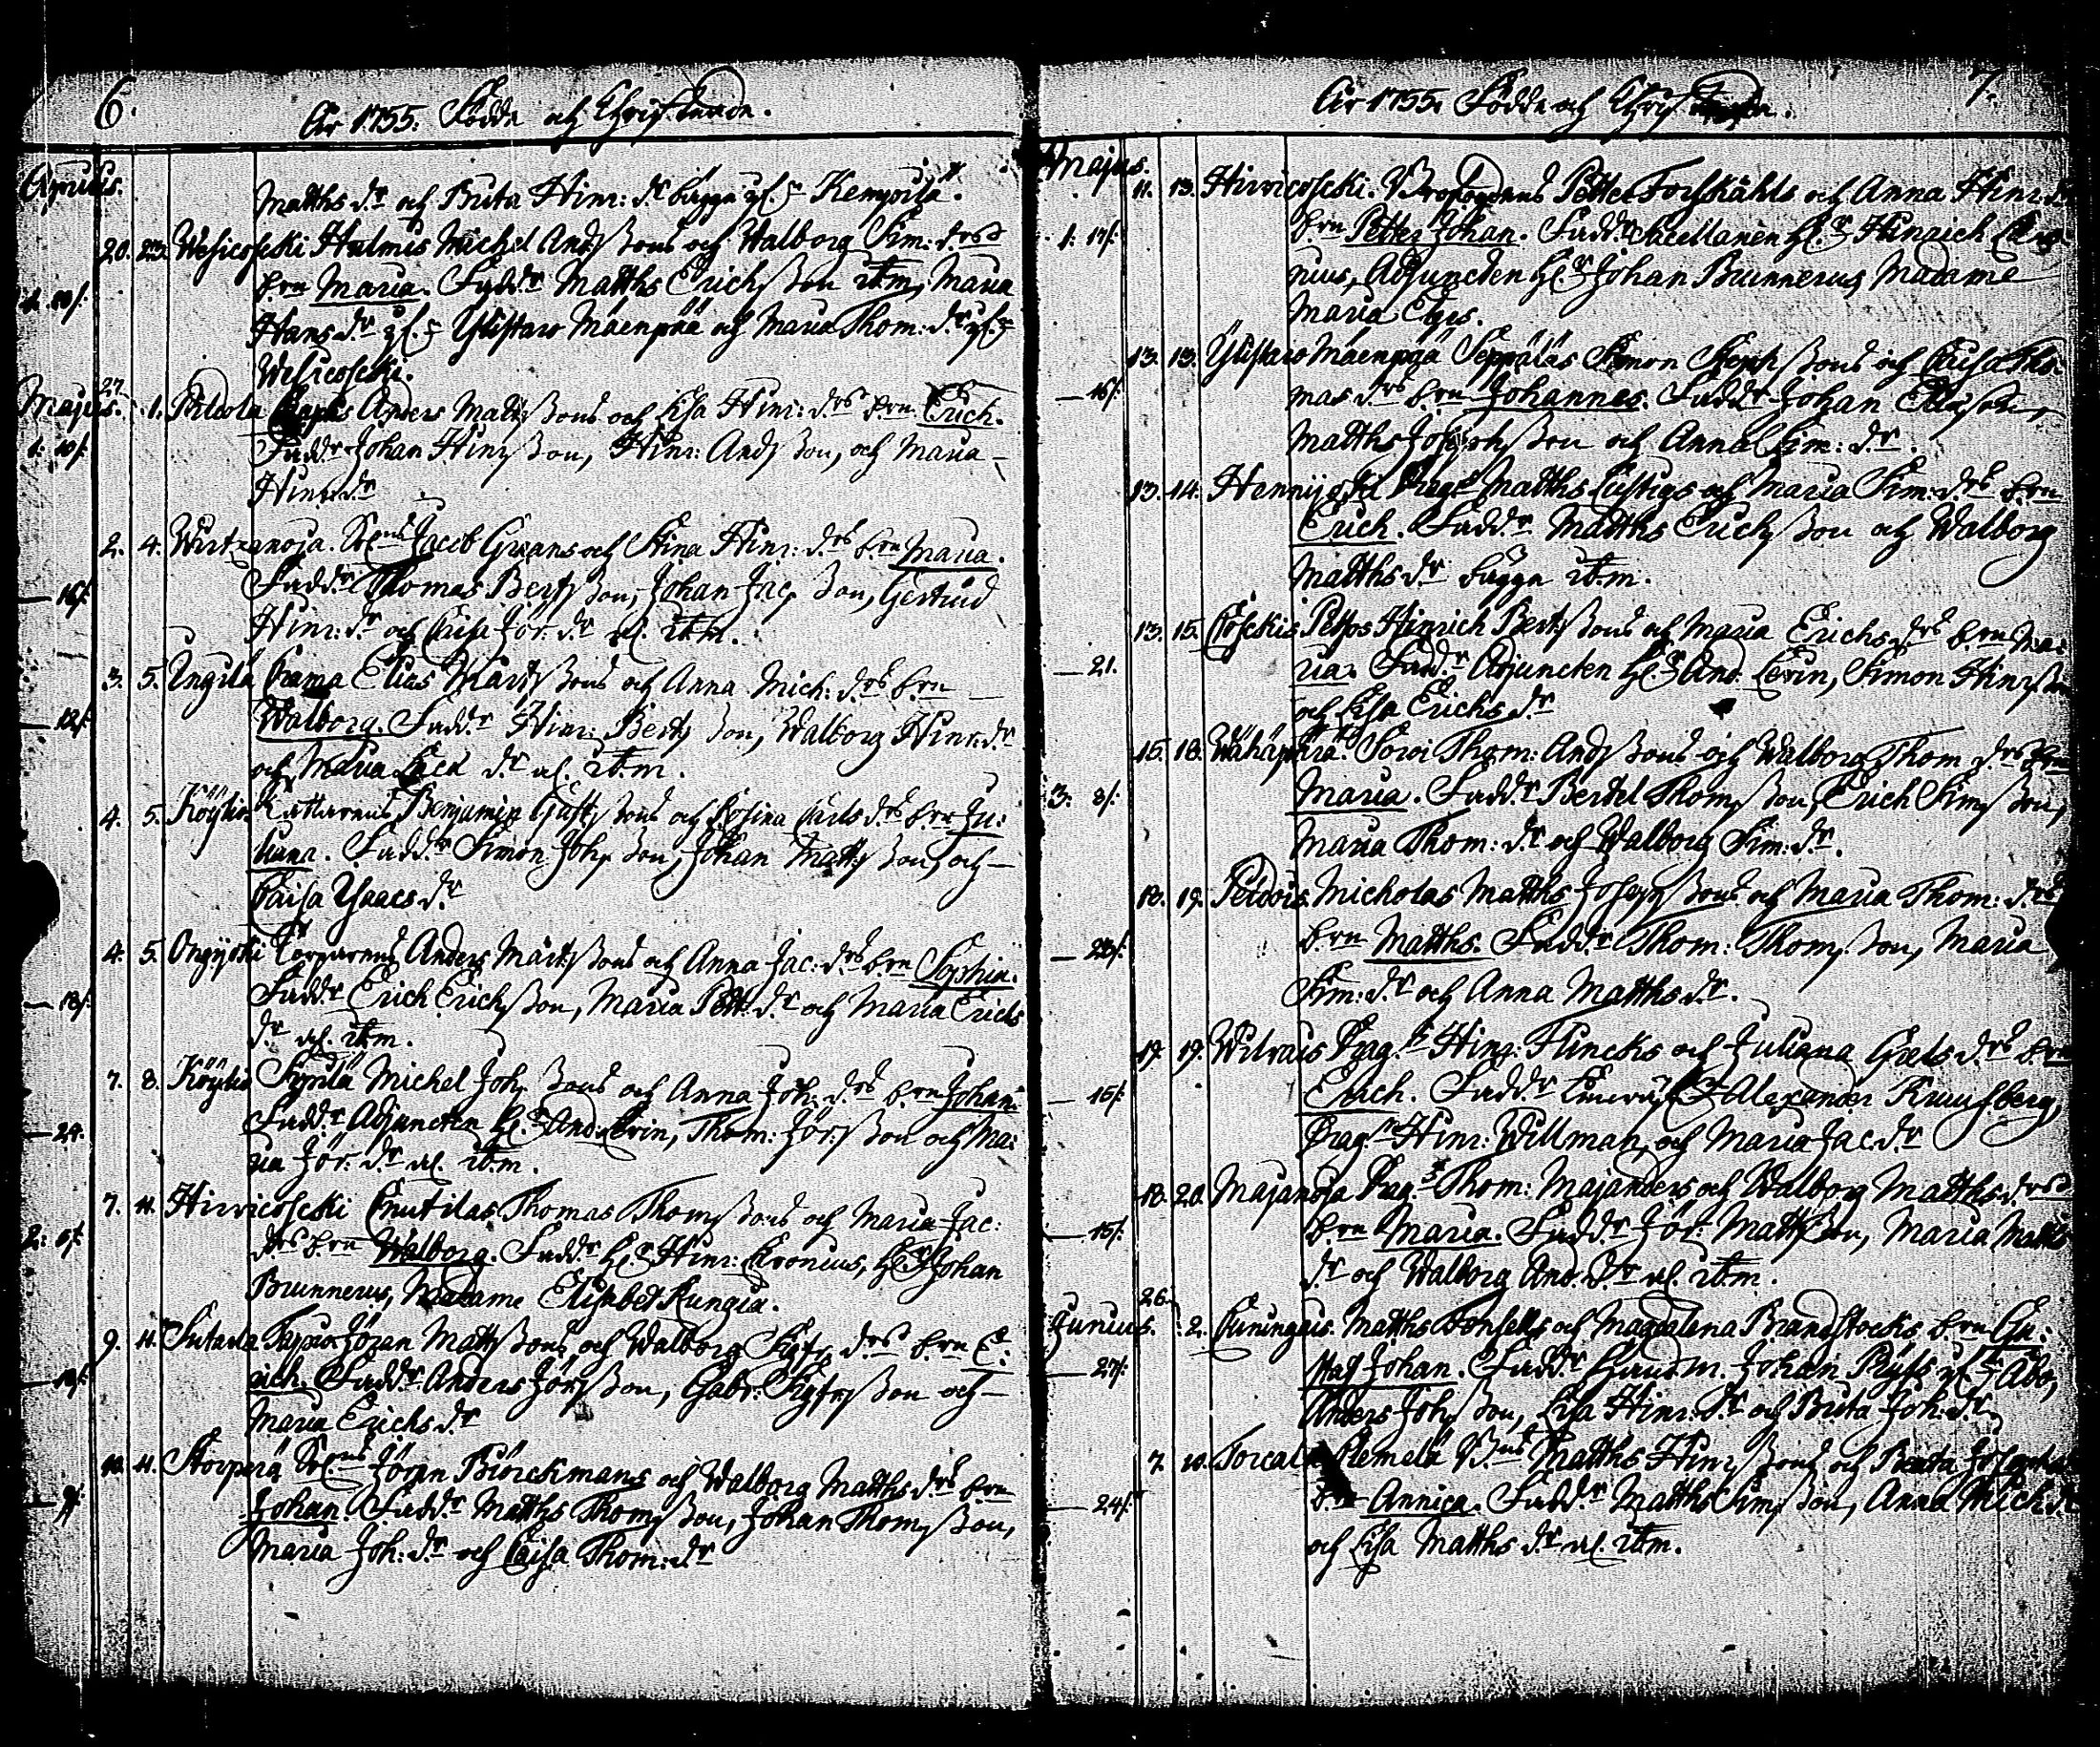 6.
År 1755. Födde och Christnade.
Aprilis.
Matths d:r och Brita Hinr: d:r bägge fr: Kempoila.
20. 23. Wesicoscki Halmis Michel Andsons och Walborg Sim: d:rs
b:rn Maria. Fadd:r Matths Erichsson ib:m, Maria
Hans d:r fr: Ylistaro Mäenpää och Maria Thom: d:r fr:
Wesicoscki.
27.
Majus. 1. Pilcola Anders Mattssons och Lisa Hinr: d:rs b:rn Erich.
Fadd:r Johan Hinrsson, Hinr: Andsson, och Maria
Hinr: d:r
2. 4. Wirtzanoja. Jacob Grans och Stina Hinr: d:rs b:rn Maria.
16/.
Fadd:r Thomas Bertsson, Johan Jacsson, Gertrud
Hinr: d:r och Caisa Jör: d:r al. ib:m.
3. 5. Ungila Prama Elias Märtssons och Anna Mich: d:rs b:rn
12/.
Walborg. Fadd:r Hinr: Bertsson, Walborg Hinr: d:r
och Maria d:r al. ib:m.
4. 5. Köyliö Benjamin Gustsons och Rosina Carls d:rs b:rn Ju:
liana. Fadd:r Simon Johsson, Johan Mattsson, och
Caisa Ysaacs d:r
4. 5. Torparens Anders Märtssons och Anna Jac: d:rs b:rn Sophia.
18/.
Fadd:r Erich Erichsson, Maria Pett: d:r och Maria Erichs
d:r al. ib:m.
7. 8. Köyliö Syrilä Michel Johssons och Anna Joh: d:rs b:rn Johan.
24.
Fadd:r Adjuncten H:r And: Levin, Thom: Jörsson och Ma:
ria Jör: d:r al. ib:m.
7. 11. Hirvicoscki Knutilas Thomas Thomssons och Maria Jac:
d:rs b:rn Walborg. Fadd:r H:r Hinr: Cronius, H:r Johan
Brunnerus, Madame Elisabet Rungia.
9. 11. Sutarla Jöran Mattssons och Walborg d:rs b:rn E:
rich. Fadd:r Anders Jörsson, Gabr: son och
Maria Erichs d:r
10. 11. Storperä Jöran Biörckmans och Walborg Matths d:rs b:rn
Johan. Fadd:r Matths Thomsson, Johan Thomsson,
Maria Joh: d:r och Caisa Thom: d:r
7.
År 1755. Födde och
Majus.
11. 13. Hirvicoscki. Petter Forskåhls och Anna Hinr: d:rs
1: 17/.
b:rn Petter Johan. Fadd:r Sacellanen H:r Hinrich Cro:
nius, Adjuncten H:r Johan Brunnerus, Madame
Maria Elges.
13. 13. Ylistaro Mäenpää Seppäläs Simon Stephssons och Caisa Tho:
16/.
mas d:rs b:rn Johannes. Fadd:r Johan
Matths Josephsson och Anna Sim: d:r.
13. 14. Hennijoki Drag:s Matths Lustigs och Maria Sim: d:rs b:rn
Erich. Fadd:r Matths Erichsson och Walborg
Matths d:r bägge ib:m.
13. 15. Coskis Hinrich Bertssons och Maria Erichs d:rs b:rn Ma:
21.
ria. Fadd:r Adjuncten H:r And: Levin, Simon Hinrsson
och Lisa Erichs d:r
15. 18. Wähäperä. Soroi Thom: Andssons och Walborg Thom d:rs b:rn
3: 8/.
Maria. Fadd:r Bertel Thomsson, Erich Simsson,
Maria Thom: d:r och Walborg Sim: d:r.
18. 19. Peldois Micholas Matths Josephssons och Maria Thom: d:rs
23/.
b:rn Matths. Fadd:r Thom: Thomsson, Maria
Sim: d:r och Anna Matths d:r.
17. 19. Wilvais Drag:s Hinr: Flincks och Juliana Gabls d:rs b:rn
15/.
Erich. Fadd:r Alexander
Drag:n Hinr: Willman, och Maria Jac: d:r
18. 20. Majanoja Drag:s Thom: Majanders och Walborg Matths d:rs
15/.
b:rn Maria. Fadd:r Jör: Mattsson, Maria Matts
d:r och Walborg And: d:r al. ib:m.
26.
Junius. 2. Cuningais. Matths Fonsells och Magdalena Brandstocks b:rn Gu:
27/.
staf Johan. Fadd:r Johan fr: Åbo,
Anders Johsson, Lisa Hinr: d:r och Brita Joh: d:r
7. 10. Matths Hinrssons och
24/.
b:rn Annica. Fadd:r Matths Simsson, Anna Mich: d:r
och Lisa Matths d:r al. ib:m.